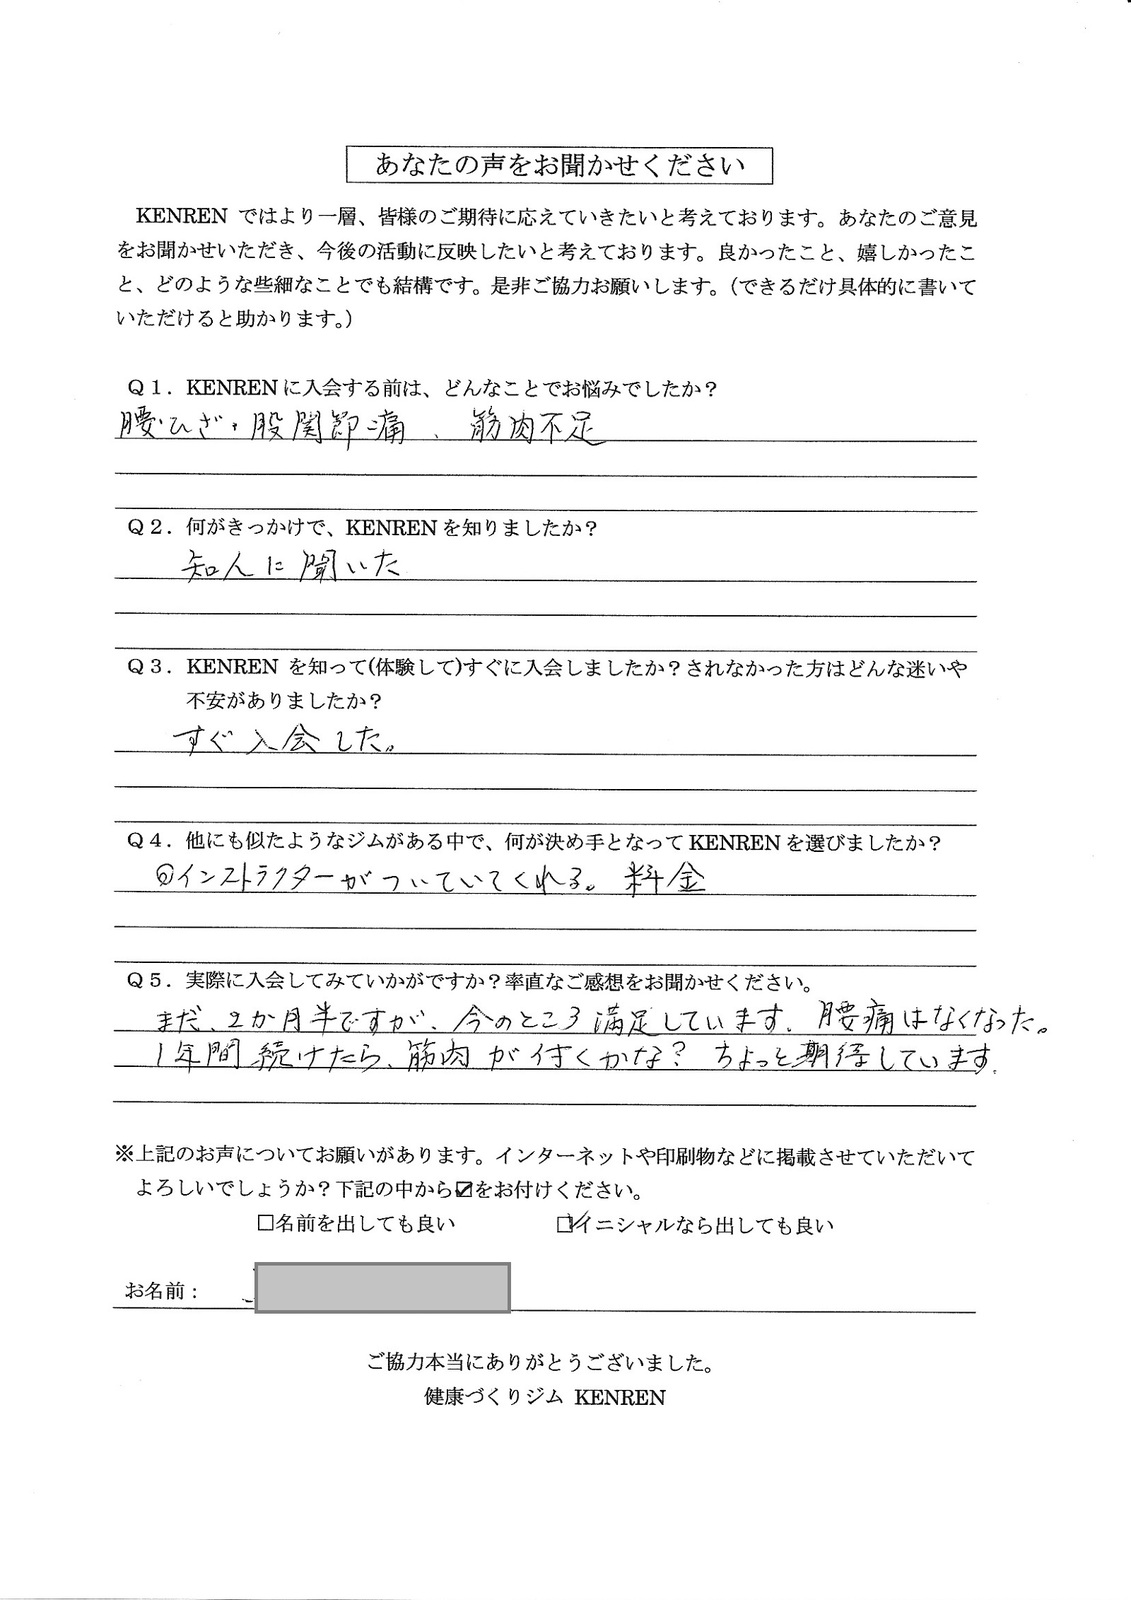 あなたの声をお聞かせください
KENREN ではより一層、皆様のご期待に応えていきたいと考えております。あなたのご意見
をお聞かせいただき、今後の活動に反映したいと考えております。良かったこと、嬉しかったこ
と、どのような些細なことでも結構です。是非ご協力お願いします。（できるだけ具体的に書いて
いただけると助かります。）
Ｑ１．KENRENに入会する前は、どんなことでお悩みでしたか？
腰・ひざ・股関節痛、筋肉不足
Ｑ２．何がきっかけで、KENRENを知りましたか？
知人に聞いた
Ｑ３．KENREN を知って(体験して)すぐに入会しましたか？されなかった方はどんな迷いや
不安がありましたか？
すぐ入会した。
Ｑ４．他にも似たようなジムがある中で、何が決め手となって KENREN を選びましたか？
インストラクターがついていてくれる。料金
Ｑ５．実際に入会してみていかがですか？率直なご感想をお聞かせください。
まだ、2か月半ですが、今のところ満足しています。腰痛はなくなった。
1年間続けたら、筋肉が付くかな？ちょっと期待しています。
※上記のお声についてお願いがあります。インターネットや印刷物などに掲載させていただいて
よろしいでしょうか？下記の中から☑をお付けください。
□名前を出しても良い ☑イニシャルなら出しても良い
お名前：
ご協力本当にありがとうございました。
健康づくりジム KENREN